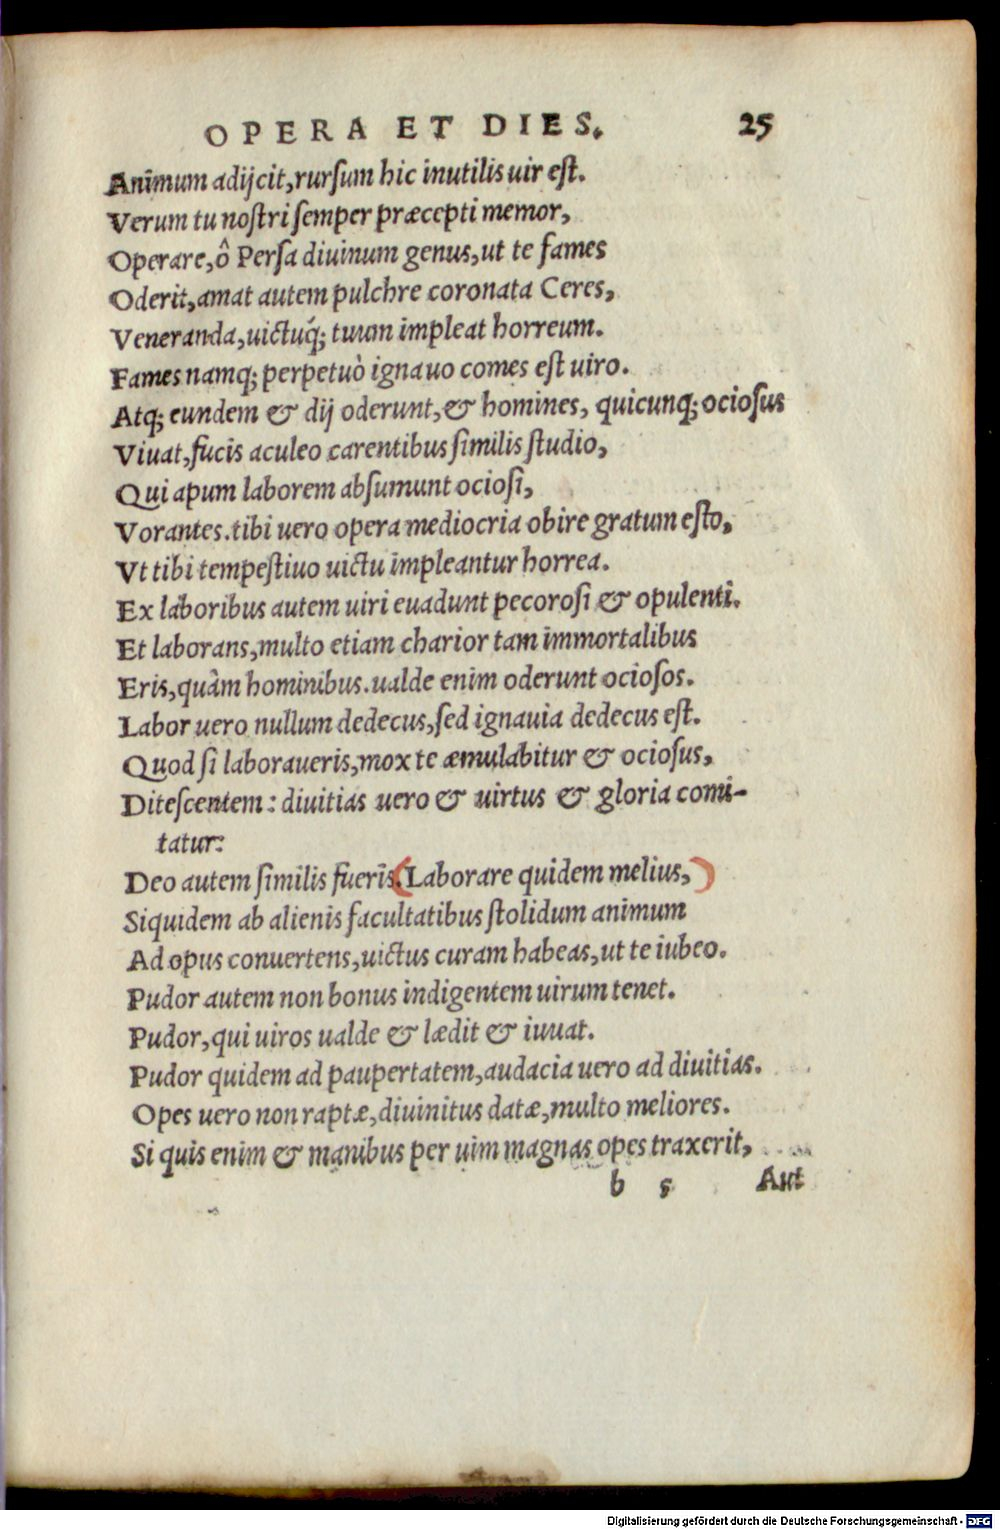 OPERA ET DIES. 25
Animum adijcit,rurſum hic inutilis uir eſt.
Verum tu noſtri ſemper præcepti memor,
Operare,ô Perſa diuinum genus,ut te fames
Oderit,amat autem pulchre coronata Ceres,
Veneranda,uictuq́; tuum impleat horreum.
Fames namq; perpetuò ignauo comes eſt uiro.
Atq; eundem & dij oderunt,& homines, quicunq; ocioſus
Viuat,fucis aculeo carentibus ſimilis ſtudio,
Qui apum laborem abſumunt ocioſi,
Vorantes.tibi uero opera mediocria obire gratum eſto,
Vt tibi tempeſtiuo uictu impleantur horrea.
Ex laboribus autem uiri euadunt pecoroſi & opulenti.
Et laborans,multo etiam charior tam immortalibus
Eris,quàm hominibus.ualde enim oderunt ocioſos.
Labor uero nullum dedecus,ſed ignauia dedecus eſt.
Quod ſi laboraueris,mox te æmulabitur & ocioſus,
Diteſcentem: diuitias uero & uirtus & gloria comi-
tatur:
Deo autem ſimilis fueris.(Laborare quidem melius,)
Siquidem ab alienis facultatibus ſtolidum animum
Ad opus conuertens,uictus curam habeas,ut te iubeo.
Pudor autem non bonus indigentem uirum tenet.
Pudor,qui uiros ualde & lædit & iuuat.
Pudor quidem ad paupertatem,audacia uero ad diuitias.
Opes uero non raptæ,diuinitus datæ,multo meliores.
Si quis enim & manibus per uim magnas opes traxerit,
b s Aut
Digitalisierung gefördert durch die Deutsche Forschungsgemeinschaft - DFG